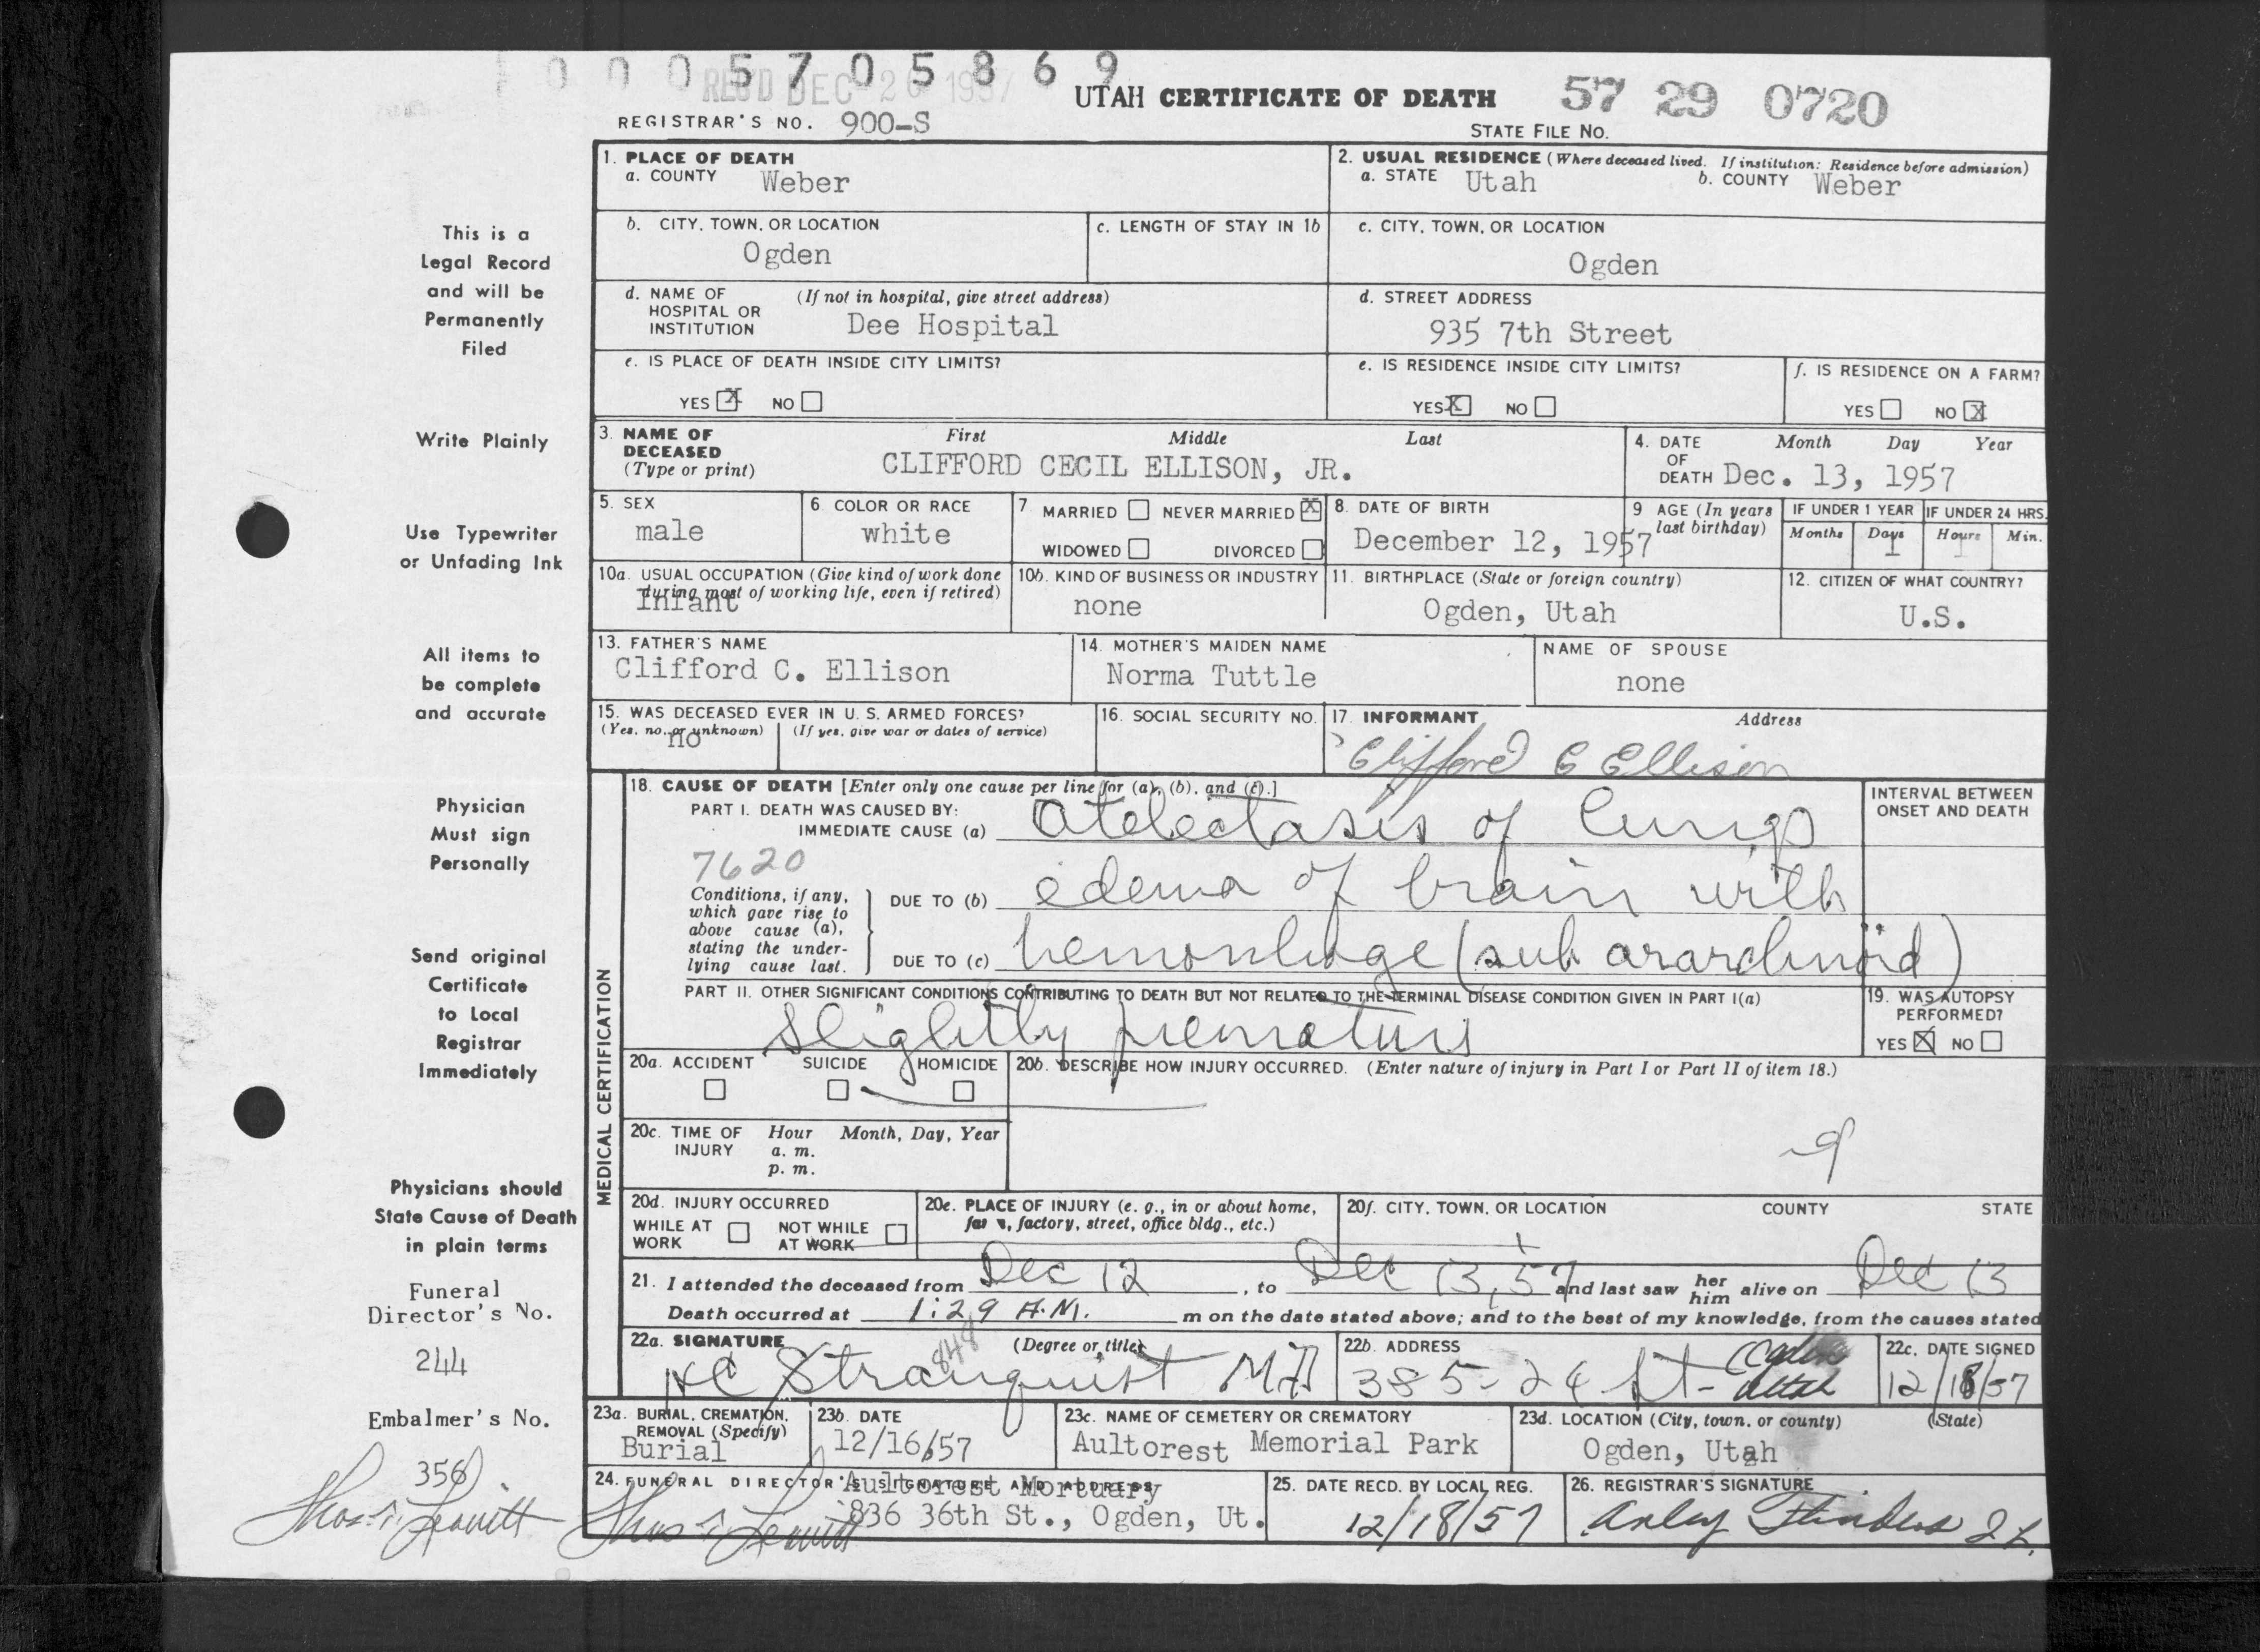 0005705869
REC'D DEC 20 1957
UTAH CERTIFICATE OF DEATH 57 29 0720
REGISTRAR'S NO. 900-S
STATE FILE NO.
1. PLACE OF DEATH
a. COUNTY Weber
2. USUAL RESIDENCE (Where deceased lived. If institution: Residence before admission)
a. STATE Utah b. COUNTY Weber
b. CITY, TOWN, OR LOCATION
Ogden
c. LENGTH OF STAY IN 1b
c. CITY, TOWN, OR LOCATION
Ogden
d. NAME OF (If not in hospital, give street address)
HOSPITAL OR
INSTITUTION Dee Hospital
d. STREET ADDRESS
935 7th Street
e. IS PLACE OF DEATH INSIDE CITY LIMITS?
YES X NO
e. IS RESIDENCE INSIDE CITY LIMITS?
YES X NO
f. IS RESIDENCE ON A FARM?
YES NO X
3. NAME OF First Middle Last
DECEASED
(Type or print) CLIFFORD CECIL ELLISON, JR.
4. DATE Month Day Year
OF
DEATH Dec. 13, 1957
5. SEX
male
6 COLOR OR RACE
white
7 MARRIED NEVER MARRIED X
WIDOWED DIVORCED
8. DATE OF BIRTH
December 12, 1957
9 AGE (In years
last birthday)
IF UNDER 1 YEAR IF UNDER 24 HRS.
Months Days Hours Min.
1 1
10a. USUAL OCCUPATION (Give kind of work done
during most of working life, even if retired)
Infant
10b. KIND OF BUSINESS OR INDUSTRY
none
11. BIRTHPLACE (State or foreign country)
Ogden, Utah
12. CITIZEN OF WHAT COUNTRY?
U.S.
13. FATHER'S NAME
Clifford C. Ellison
14. MOTHER'S MAIDEN NAME
Norma Tuttle
NAME OF SPOUSE
none
15. WAS DECEASED EVER IN U. S. ARMED FORCES?
(Yes, no, or unknown) (If yes, give war or dates of service)
no
16. SOCIAL SECURITY NO.
17. INFORMANT Address
Clifford C Ellison
MEDICAL CERTIFICATION
18. CAUSE OF DEATH [Enter only one cause per line for (a), (b), and (c).]
PART I. DEATH WAS CAUSED BY:
IMMEDIATE CAUSE (a) Atelectasis of lungs
INTERVAL BETWEEN
ONSET AND DEATH
7620
Conditions, if any,
which gave rise to
above cause (a),
stating the under-
lying cause last.
DUE TO (b) edema of brain with
DUE TO (c) hemorrhage (sub arachnoid)
PART II. OTHER SIGNIFICANT CONDITIONS CONTRIBUTING TO DEATH BUT NOT RELATED TO THE TERMINAL DISEASE CONDITION GIVEN IN PART I(a)
slightly premature
19. WAS AUTOPSY
PERFORMED?
YES X NO
20a. ACCIDENT SUICIDE HOMICIDE
20b. DESCRIBE HOW INJURY OCCURRED. (Enter nature of injury in Part I or Part II of item 18.)
20c. TIME OF Hour Month, Day, Year
INJURY a. m.
p. m.
20d. INJURY OCCURRED
WHILE AT NOT WHILE
WORK AT WORK
20e. PLACE OF INJURY (e. g., in or about home,
farm, factory, street, office bldg., etc.)
20f. CITY, TOWN, OR LOCATION COUNTY STATE
21. I attended the deceased from Dec 12, to Dec 13, 57 and last saw her him alive on Dec 13
Death occurred at 1:29 A.M. m on the date stated above; and to the best of my knowledge, from the causes stated
22a. SIGNATURE (Degree or title)
848
HC Stranquist MD
22b. ADDRESS
385-24 St- Ogden Utah
22c. DATE SIGNED
12/18/57
23a. BURIAL, CREMATION,
REMOVAL (Specify)
Burial
23b. DATE
12/16/57
23c. NAME OF CEMETERY OR CREMATORY
Aultorest Memorial Park
23d. LOCATION (City, town, or county) (State)
Ogden, Utah
24. FUNERAL DIRECTOR'S SIGNATURE AND ADDRESS
Aultorest Mortuary
836 36th St., Ogden, Ut.
Thos. Leavitt
25. DATE RECD. BY LOCAL REG.
12/18/57
26. REGISTRAR'S SIGNATURE
Flinders
This is a
Legal Record
and will be
Permanently
Filed
Write Plainly
Use Typewriter
or Unfading Ink
All items to
be complete
and accurate
Physician
Must sign
Personally
Send original
Certificate
to Local
Registrar
Immediately
Physicians should
State Cause of Death
in plain terms
Funeral
Director's No.
244
Embalmer's No.
356
Thos. Leavitt